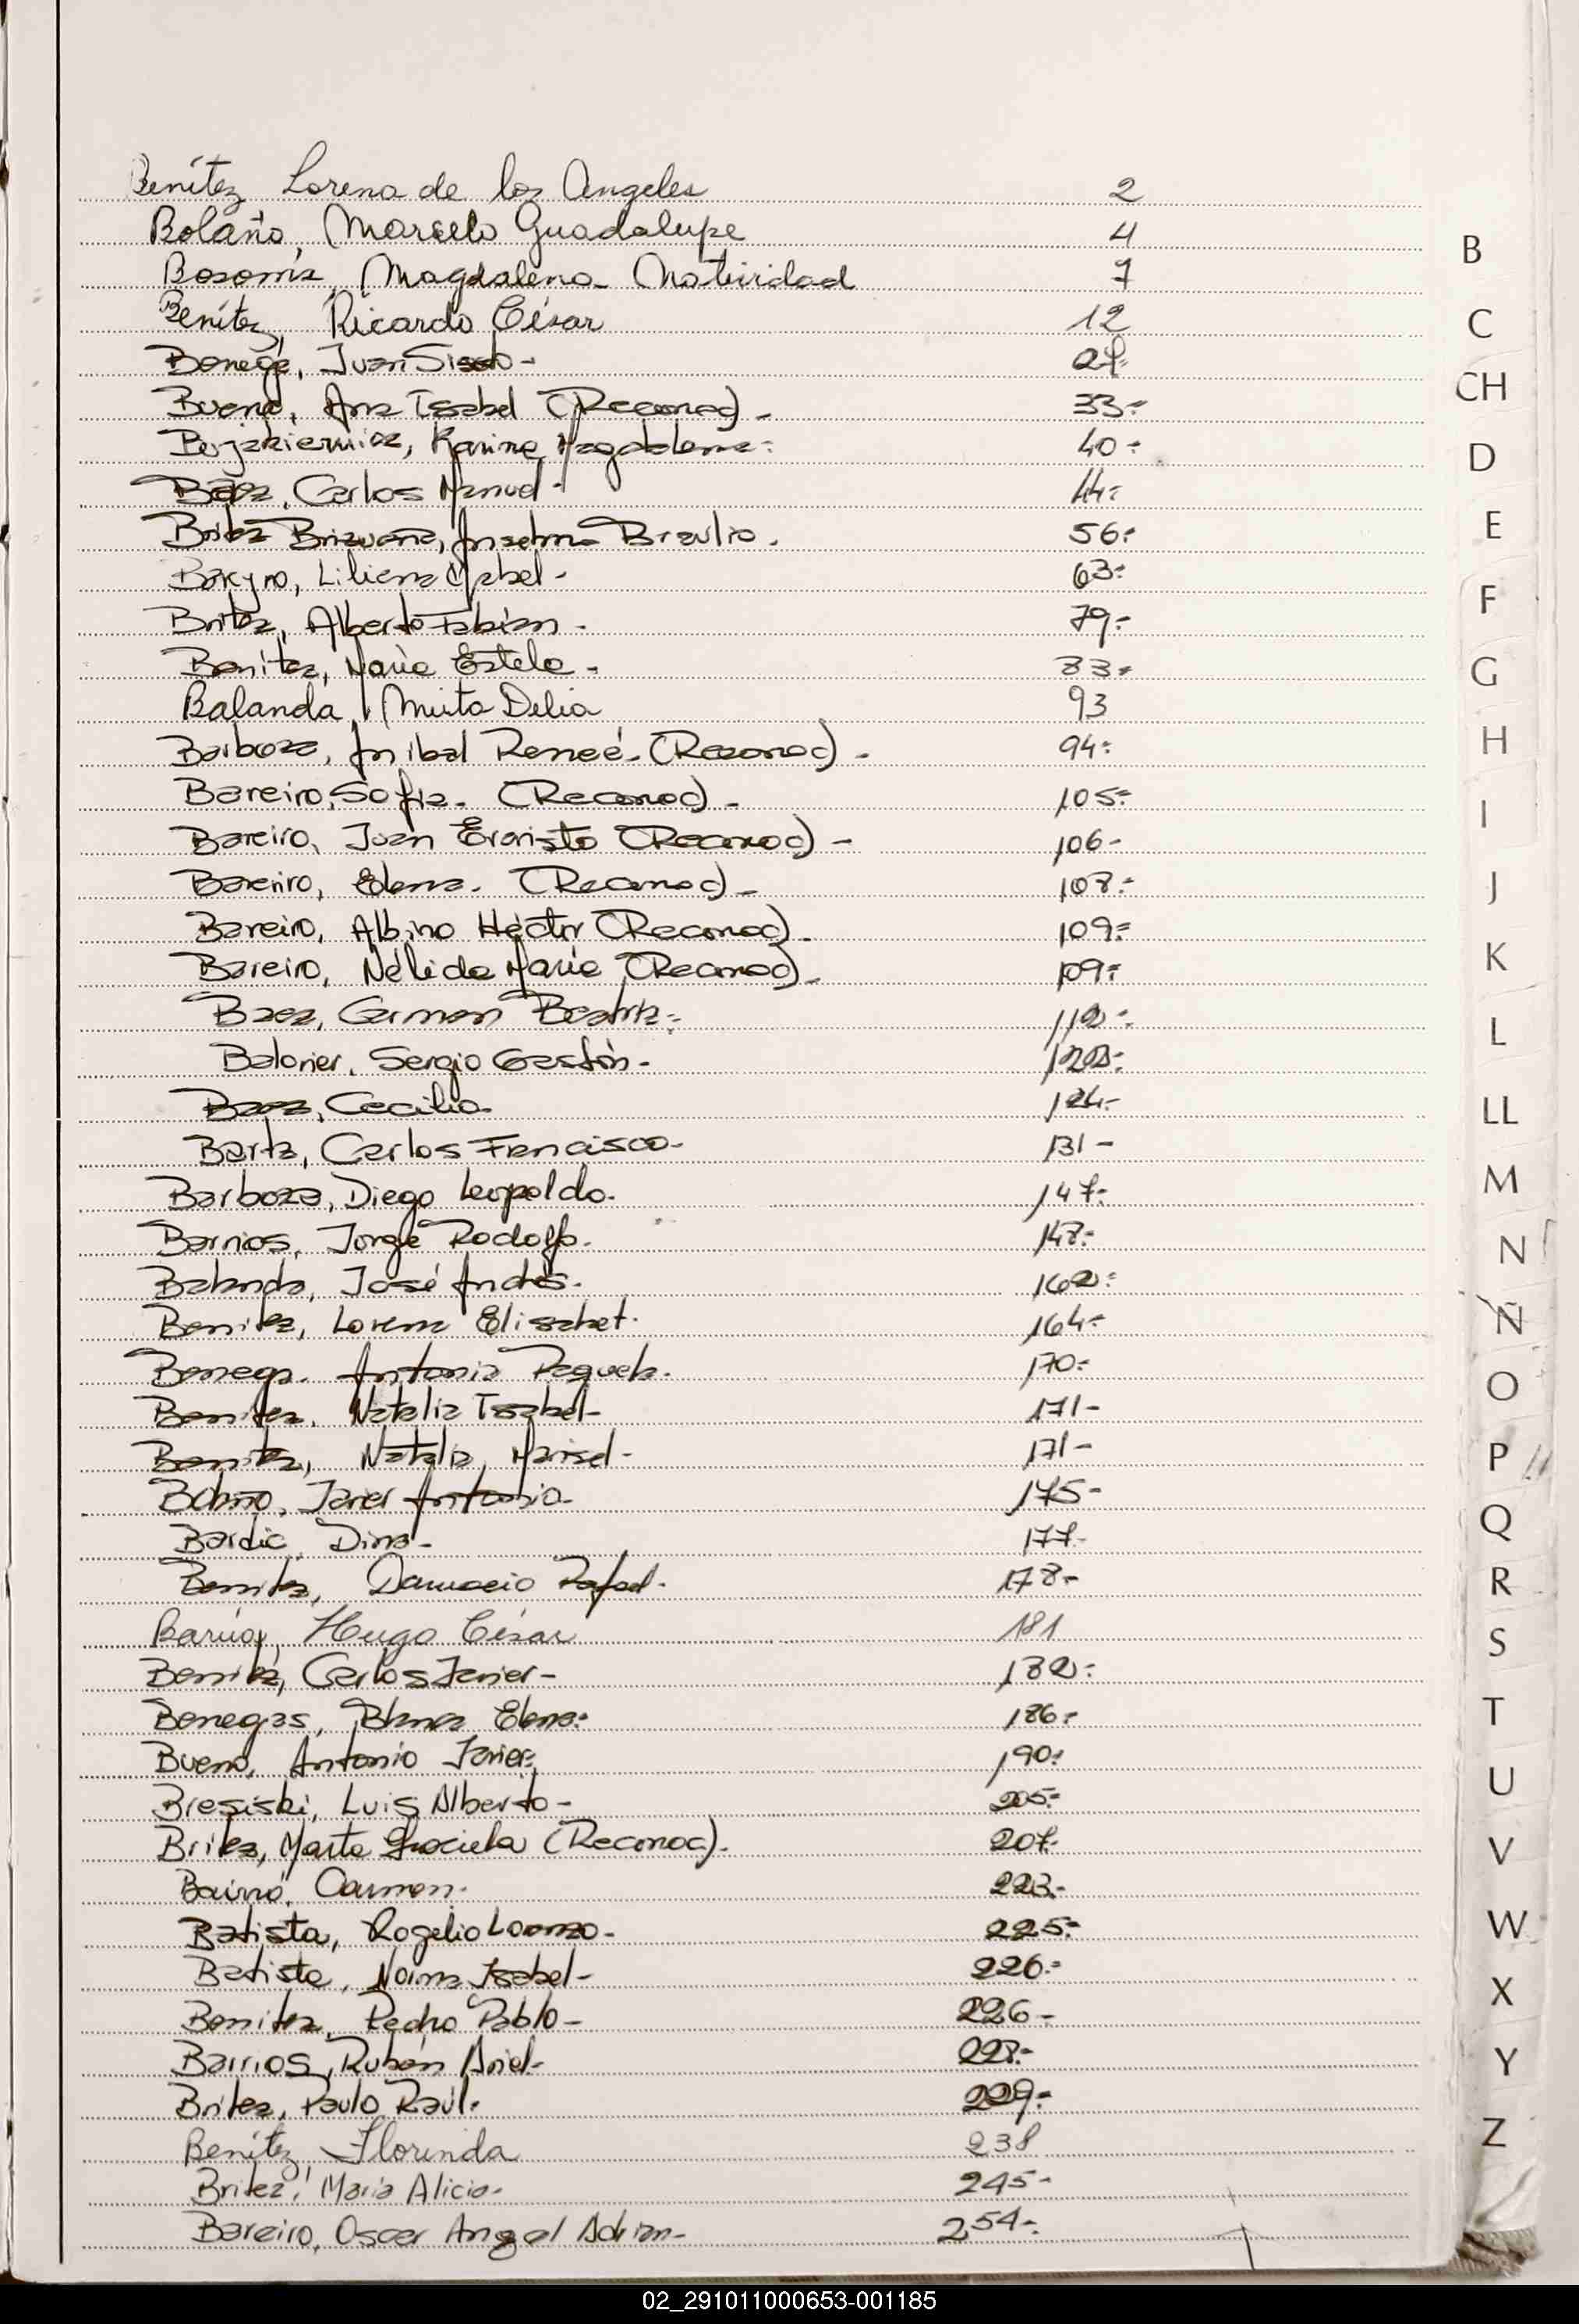 Benítez Lorena de los Angeles 2
Bolaño, Marcelo Guadalupe 4
Magdalena Natividad 7
Benítez, Ricardo César 12
Benega, Juan Sixto - 27-
Bueno, Ana Isabel (Reconoc) - 33-
Karina Magdalena- 40-
Báez, Carlos Manuel - 44-
Britez Anselmo Braulio. 56-
Liliana Mabel - 63-
Britez, Alberto Fabián - 79-
Benítez, María Estela - 83-
Balanda, Mirta Delia 93
Barboza, Aníbal Reneé. (Reconoc) - 94-
Bareiro, Sofia. (Reconoc) - 105-
Bareiro, Juan Evaristo (Reconoc) - 106-
Bareiro, Elena. (Reconoc) - 108-
Bareiro, Albino Héctor (Reconoc). 109-
Bareiro, Nélida María (Reconoc). 109-
Baez, Carmen Beatriz- 112-
Sergio Gastón. 123-
Baez, Cecilia. 124-
Carlos Francisco- 131-
Barboza, Diego Leopoldo. 147-
Barrios, Jorge Rodolfo. 148-
Balanda, José Andrés. 162-
Benitez, Lorena Elisabet. 164-
Benega. Antonia Raquela. 170-
Benitez, Natalia Isabel- 171-
Benitez, Natalia Marisel- 171-
Bolaño, Javier Antonio- 175-
Dina- 177-
Benitez, Damacio Rafael. 178-
Barrios, Hugo César 181
Benitez, Carlos Javier- 182-
Benegas, Blanca Elena- 186-
Bueno, Antonio Javier- 190-
Bresiski, Luis Alberto- 205-
Britez, Marta Graciela (Reconoc). 207-
Carmen. 223-
Batista, Rogelio Lorenzo- 225-
Batista, Norma Isabel- 226-
Benitez, Pedro Pablo- 226-
Barrios, Rubén Ariel- 228-
Britez, Paulo Raúl. 229-
Benítez, Florinda 238
Britez, María Alicia. 245-
Bareiro, Oscar Angel Adrian- 254-
B
C
CH
D
E
F
G
H
I
J
K
L
LL
M
N
Ñ
O
P
Q
R
S
T
U
V
W
X
Y
Z
02_291011000653-001185